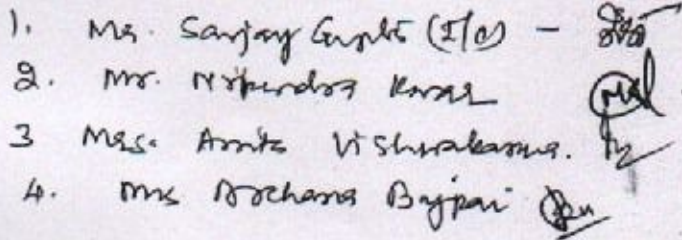 1. Mr. Sanjay Gupta (I/C) -
2. Mr. Nripendra Kumar
3 Mrs. Amita Vishwakarma.
4. Mrs Archana Bajpai